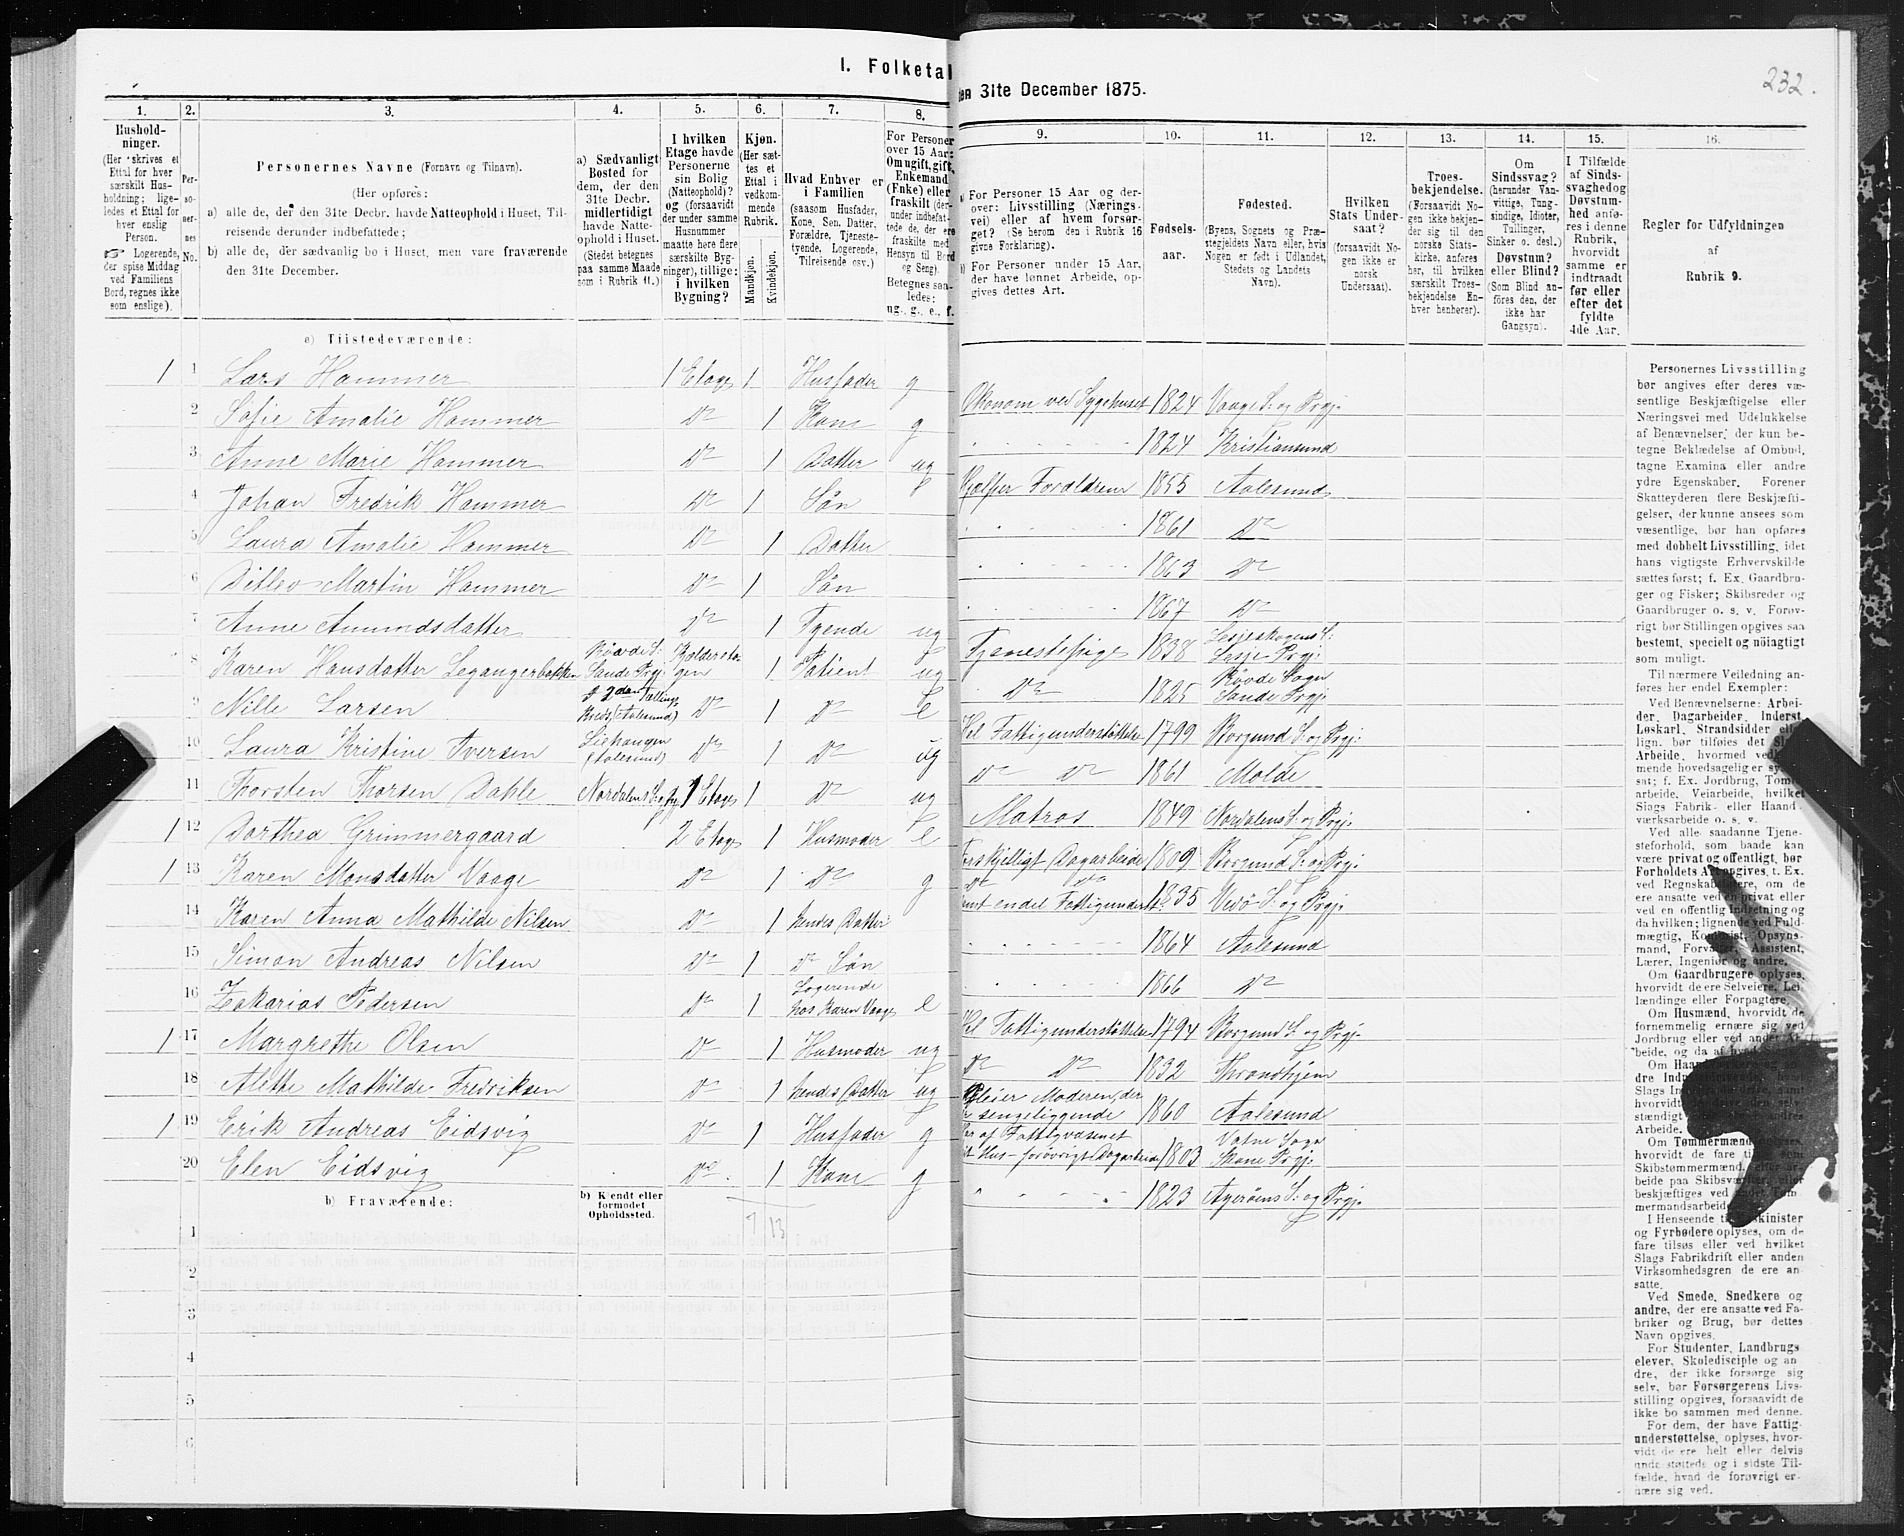 I. Folketal
den 31te December 1875.
232.
1.
Hushold-
ninger.
(Her skrives et
Ettal for hver
særskilt Hus-
holdning; lige-
ledes et Ettal for
hver enslig
Person.
☞ Logerende,
der spise Middag
ved Familiens
Bord, regnes ikke
som enslige).
2.
Per-
so-
ner-
nes
No.
3.
Personernes Navne (Fornavn og Tilnavn).
(Her opføres:
a) alle de, der den 31te Decbr. havde Natteophold i Huset, Til-
reisende derunder indbefattede;
b) alle de, der sædvanlig bo i Huset, men vare fraværende
den 31te December.
4.
a) Sædvanligt
Bosted for
dem, der den
31te Decbr.
midlertidigt
havde Natte-
ophold i Huset.
(Stedet betegnes
paa samme Maade
som i Rubrik 11.)
5.
I hvilken
Etage havde
Personerne
sin Bolig
(Natteophold)?
og (forsaavidt
der under samme
Husnummer
maatte høre flere
særskilte Byg-
ninger), tillige:
i hvilken
Bygning?
6.
Kjøn.
(Her sæt-
tes et
Ettal i
vedkom-
mende
Rubrik.
Mandkjøn.
Kvindekjøn.
7.
Hvad Enhver er
i Familien
(saasom Husfader,
Kone, Søn, Datter,
Forældre, Tjeneste-
tyende, Logerende,
Tilreisende osv.)
8.
For Personer
over 15 Aar:
Om ugift, gift,
Enkemand
(Enke) eller
fraskilt (der-
under indbefat-
tede de, der ere
fraskilte med
Hensyn til Bord
og Seng).
Betegnes saa-
ledes:
ug., g., e., f.
9.
a) For Personer 15 Aar og der-
over: Livsstilling (Nærings-
vei) eller af hvem forsør-
get? (Se herom den i Rubrik 16
givne Forklaring).
b) For Personer under 15 Aar,
der have lønnet Arbeide, op-
gives dettes Art.
10.
Fødsels-
aar.
11.
Fødested.
(Byens, Sognets og Præ-
stegjeldets Navn eller, hvis
Nogen er født i Udlandet,
Stedets og Landets
Navn).
12.
Hvilken
Stats Under-
saat?
(forsaavidt No-
gen ikke er
norsk
Undersaat).
13.
Troes-
bekjendelse.
(Forsaavidt No-
gen ikke bekjen-
der sig til den
norske Stats-
kirke, anføres
her, til hvilken
særskilt Troes-
bekjendelse En-
hver henhører).
14.
Om
Sindssvag?
(herunder Van-
vittige, Tung-
sindige, Idioter,
Tullinger,
Sinker o. desl.)
Døvstum?
eller Blind?
(Som Blind an-
føres den, der
ikke har
Gangsyn).
15.
I Tilfælde
af Sinds-
svaghed og
Døvstum-
hed anfø-
res i denne
Rubrik,
hvorvidt
samme er
indtraadt
før eller
efter det
fyldte
4de Aar.
16.
Regler for Udfyldningen
af
Rubrik 9.
a) Tilstedeværende:
1 1 Lars Hammer 1 Etage 1 Husfader g Økonom ved Sygehuset 1824 Vaage S. og Prgj.
2 Sofie Amalie Hammer Do 1 Kone g 1824 Kristiansund
3 Anne Marie Hammer Do 1 Datter ug Hjælper Forældrene 1855 Aalesund
4 Johan Fredrik Hammer Do 1 Søn 1861 Do
5 Laura Amalie Hammer Do 1 Datter 1863 Do
6 Ditlev Martin Hammer Do 1 Søn 1867 Do
7 Anne Amundsdatter Do 1 Tyende ug Tjenestepige 1838 Lesjeskogens S: Lesje Prgj.
8 Karen Hansdatter Legangerbakken Røvde S: Sande Prgj. Kjælderetagen 1 Patient ug Do 1825 Røvde Sogn Sande Prgj.
9 Nille Larsen Tællings Kreds (Aalesund) Do 1 Do e Hel Fattigunderstøttelse 1799 Borgund S: og Prgj:
10 Laura Kristine Iversen (Aalesund) Do 1 Do ug Do Do 1861 Molde
11 Thorsten Thorsen Dahle Nordalens S. og Prgj. 1 Etage 1 Do ug Matros 1849 Nordalens S: og Prgj.
1 12 Dorthea Grimmergaard 2 Etage 1 Husmoder e Forskjelligt Dagarbeide 1809 Borgund S: og Prgj.
1 13 Karen Monsdatter Vaage Do 1 Do g Do Do samt endel Fattigunderst. 1835 Vedø S: og Prgj.
14 Karen Anna Mathilde Nilsen Do 1 hendes Datter 1864 Aalesund
15 Simon Andreas Nilsen Do 1 Do Søn 1866 Do
16 Zakarias Pedersen Do 1 Logerende hos Karen Vaage e Hel Fattigunderstøttelse 1794 Borgund S: og Prgj.
1 17 Margrethe Olsen Do 1 Husmoder ug Do Do 1832 Throndhjem
18 Alethe Mathilde Fredriksen Do 1 hendes Datter ug Pleier Moderen, der er sengeliggende 1860 Aalesund
1 19 Erik Andreas Eidsvig Do 1 Husfader g Har af Fattigvæsenet frit Hus- forøvrigt Dagarbeide 1803 Vatne Sogn Prgj.
20 Elen Eidsvig Do 1 Kone g 1823 Agerøens S: og Prgj.
b) Fraværende:
b) Kjendt eller
formodet
Opholdssted.
7 13
1
2
3
4
5
6
Personernes Livsstilling
bør angives efter deres væ-
sentlige Beskjæftigelse eller
Næringsvei med Udelukkelse
af Benævnelser, der kun be-
tegne Beklædelse af Ombud,
tagne Examina eller andre
ydre Egenskaber. Forener
Skatteyderen flere Beskjæfti-
gelser, der kunne ansees som
væsentlige, bør han opføres
med dobbelt Livsstilling, idet
hans vigtigste Erhvervskilde
sættes først; f. Ex. Gaardbru-
ger og Fisker; Skibsreder og
Gaardbruger o. s. v. Forøv-
rigt bør Stillingen opgives saa
bestemt, specielt og nøiagtigt
som muligt.
Til nærmere Veiledning an-
føres her endel Exempler:
Ved Benævnelserne: Arbei-
der, Dagarbeider, Inderst,
Løskarl, Strandsidder eller
lign. bør tilføies det Slags
Arbeide, hvormed vedkom-
mende hovedsagelig er
sat; f. Ex. Jordbrug, Tomte-
arbeide, Veiarbeide, hvilket
Slags Fabrik- eller Haand-
værksarbeide o. s. v.
Ved alle saadanne Tjene-
steforhold, som baade kan
være privat og offentlig, bør
Forholdets Art opgives, t. Ex.
ved Regnskabsførere, om de
ere ansatte ved en privat eller
ved en offentlig Indretning og
da hvilken; lignende ved Fuld-
mægtig, Kontorist, Opsyns-
mand, Forvalter, Assistent,
Lærer, Ingeniør og andre.
Om Gaardbrugere oplyses,
hvorvidt de ere Selveiere, Lei-
lændinge eller Forpagtere.
Om Husmænd, hvorvidt de
fornemmelig ernære sig ved
Jordbrug eller ved andet Ar-
beide, og da af
Om
hvorvidt
stændigt
Arbeide.
Om Tømmermænd oplyses,
hvorvidt de fare til som
Skibstømmermænd, eller ar-
beide paa Skibsværfter, eller
beskjæftiges ved andet Tøm-
mermandsarbeide.
I Henseende til Maskinister
og Fyrbødere oplyses, om de
fare tilsøs eller ved hvilket
Slags Fabrikdrift eller anden
Virksomhedsgren de ere an-
satte.
Ved Smede, Snedkere og
andre, der ere ansatte ved Fa-
briker og Brug, bør dettes
Navn opgives.
For Studenter, Landbrugs-
elever, Skoledisciple og an-
dre, der ikke forsørge sig
selv, bør Forsørgerens Livs-
stilling opgives, forsaavidt de
ikke bo sammen med denne.
For dem, der have Fattig-
understøttelse, oplyses, hvor-
vidt de ere helt eller delvis
understøttede og i sidste Til-
fælde, hvad de forøvrigt er-
nære sig ved.